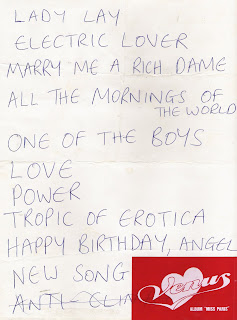 LADY LAY
ELECTRIC LOVER
MARRY ME A RICH DAME
ALL THE MORNINGS OF
THE WORLD
ONE OF THE BOYS
LOVE
POWER
TROPIC OF EROTICA
HAPPY BIRTHDAY, ANGEL
NEW SONG
ANTI-CLIM
Venus
ALBUM "MISS PARIS"